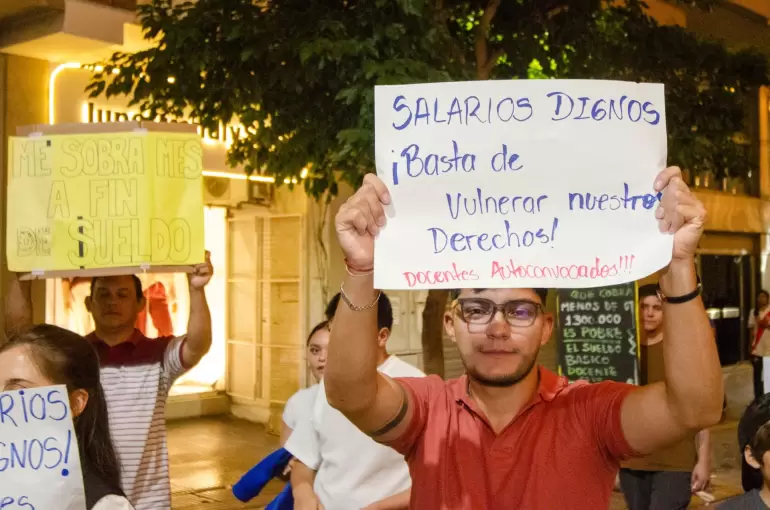 ME SOBRA MES
A FIN
DE $UELDO
SALARIOS DIGNOS
¡Basta de
Vulnerar nuestros
Derechos!
Docentes Autoconvocados!!!
QUE COBRA
MENOS DE
1300.000
ES POBRE
EL SUELDO
BASICO
DOCENTE
RIOS
GNOS!
es